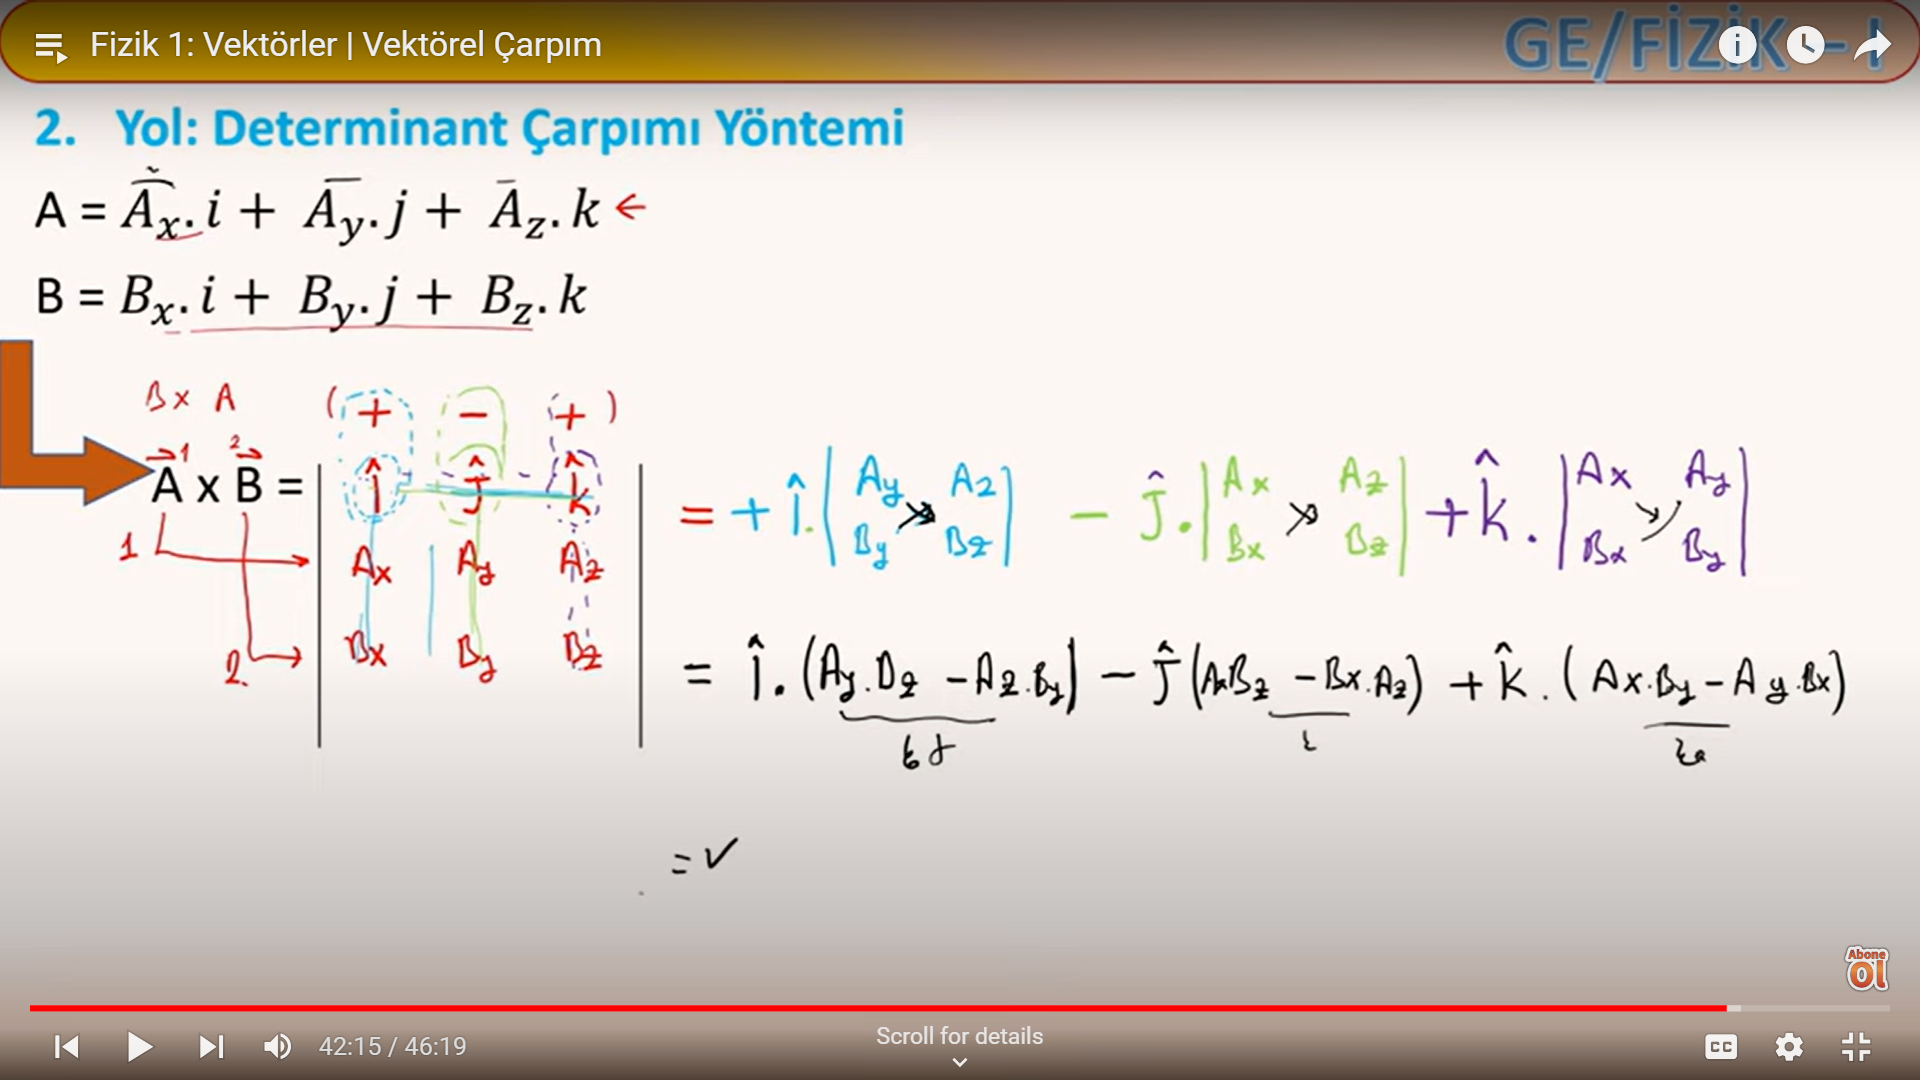 Fizik 1: Vektörler | Vektörel Çarpım
GE/FİZİK – I
2. Yol: Determinant Çarpımı Yöntemi
A = Aₓ. i + A_y. j + A_z. k ←
B = Bₓ. i + B_y. j + B_z. k
B x A
( + - + )
1 2
A x B = | î ĵ k̂ | = + î. | Ay Az | - ĵ. | Ax Az | + k̂. | Ax Ay |
By Bz Bx Bz Bx By
1 Ax Ay Az
2. Bx By Bz
= î. (Ay.Dz - Az.By) - ĵ (AxBz - Bx.Az) + k̂. (Ax.By - Ay.Bx)
= ✓
Abone
Ol
42:15 / 46:19
Scroll for details
CC